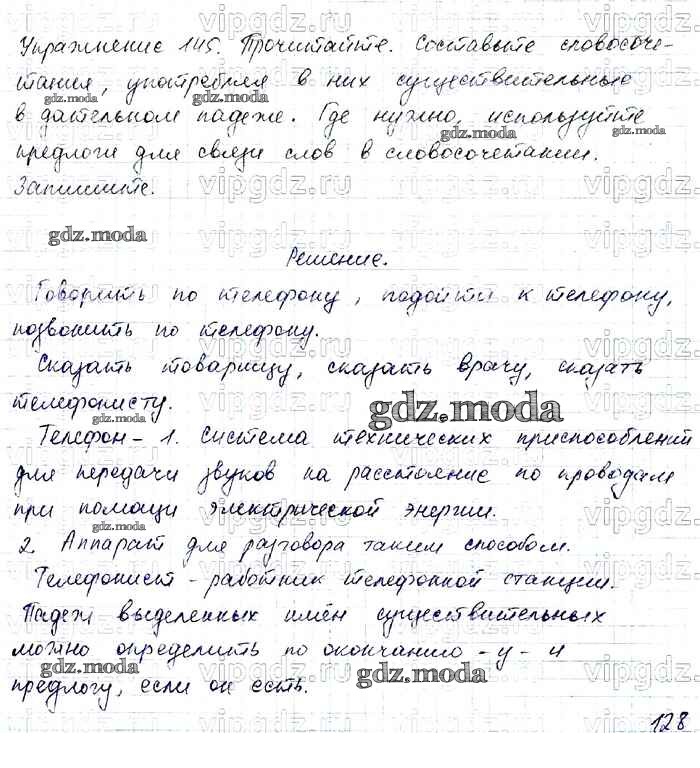 Упражнение 145. Прочитайте. Составьте словосоче-
тания, употребляя в них существительные
в дательном падеже. Где нужно, используйте
предлоги для связи слов в словосочетании.
Запишите.
gdz.moda
Решение.
Говорить по телефону, подойти к телефону,
позвонить по телефону.
Сказать товарищу, сказать врачу, сказать
телефонисту.
gdz.moda
Телефон - 1. Система технических приспособлений
для передачи звуков на расстояние по проводам
при помощи электрической энергии.
2. Аппарат для разговора таким способом.
Телефонист - работник телефонной станции.
Падеж выделенных имён существительных
можно определить по окончанию -у- и
предлогу, если он есть.
gdz.moda
128